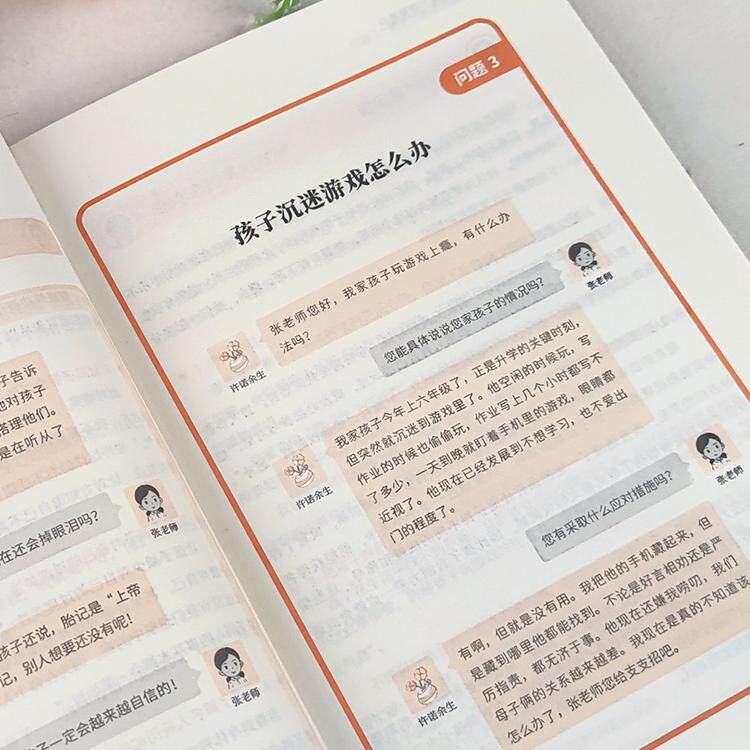 子告诉
他对孩子
搭理他们。
是在听从了
在还会掉眼泪吗？
张老师
孩子还说，胎记是“上帝
记，别人想要还没有呢！
张老师
子一定会越来越自信的！
问题 3
孩子沉迷游戏怎么办
张老师您好，我家孩子玩游戏上瘾，有什么办
法吗？
许诺余生
您能具体说说您家孩子的情况吗？
张老师
我家孩子今年上六年级了，正是升学的关键时刻，
但突然就沉迷到游戏里了。他空闲的时候玩，写
作业的时候也偷偷玩，作业写上几个小时都写不
了多少，一天到晚就盯着手机里的游戏，眼睛都
近视了。他现在已经发展到不想学习，也不爱出
门的程度了。
许诺余生
您有采取什么应对措施吗？
张老师
有啊，但就是没有用。我把他的手机藏起来，但
是藏到哪里他都能找到。不论是好言相劝还是严
厉指责，都无济于事。他现在还嫌我唠叨，我们
母子俩的关系越来越差。我现在是真的不知道该
怎么办了，张老师您给支支招吧。
许诺余生